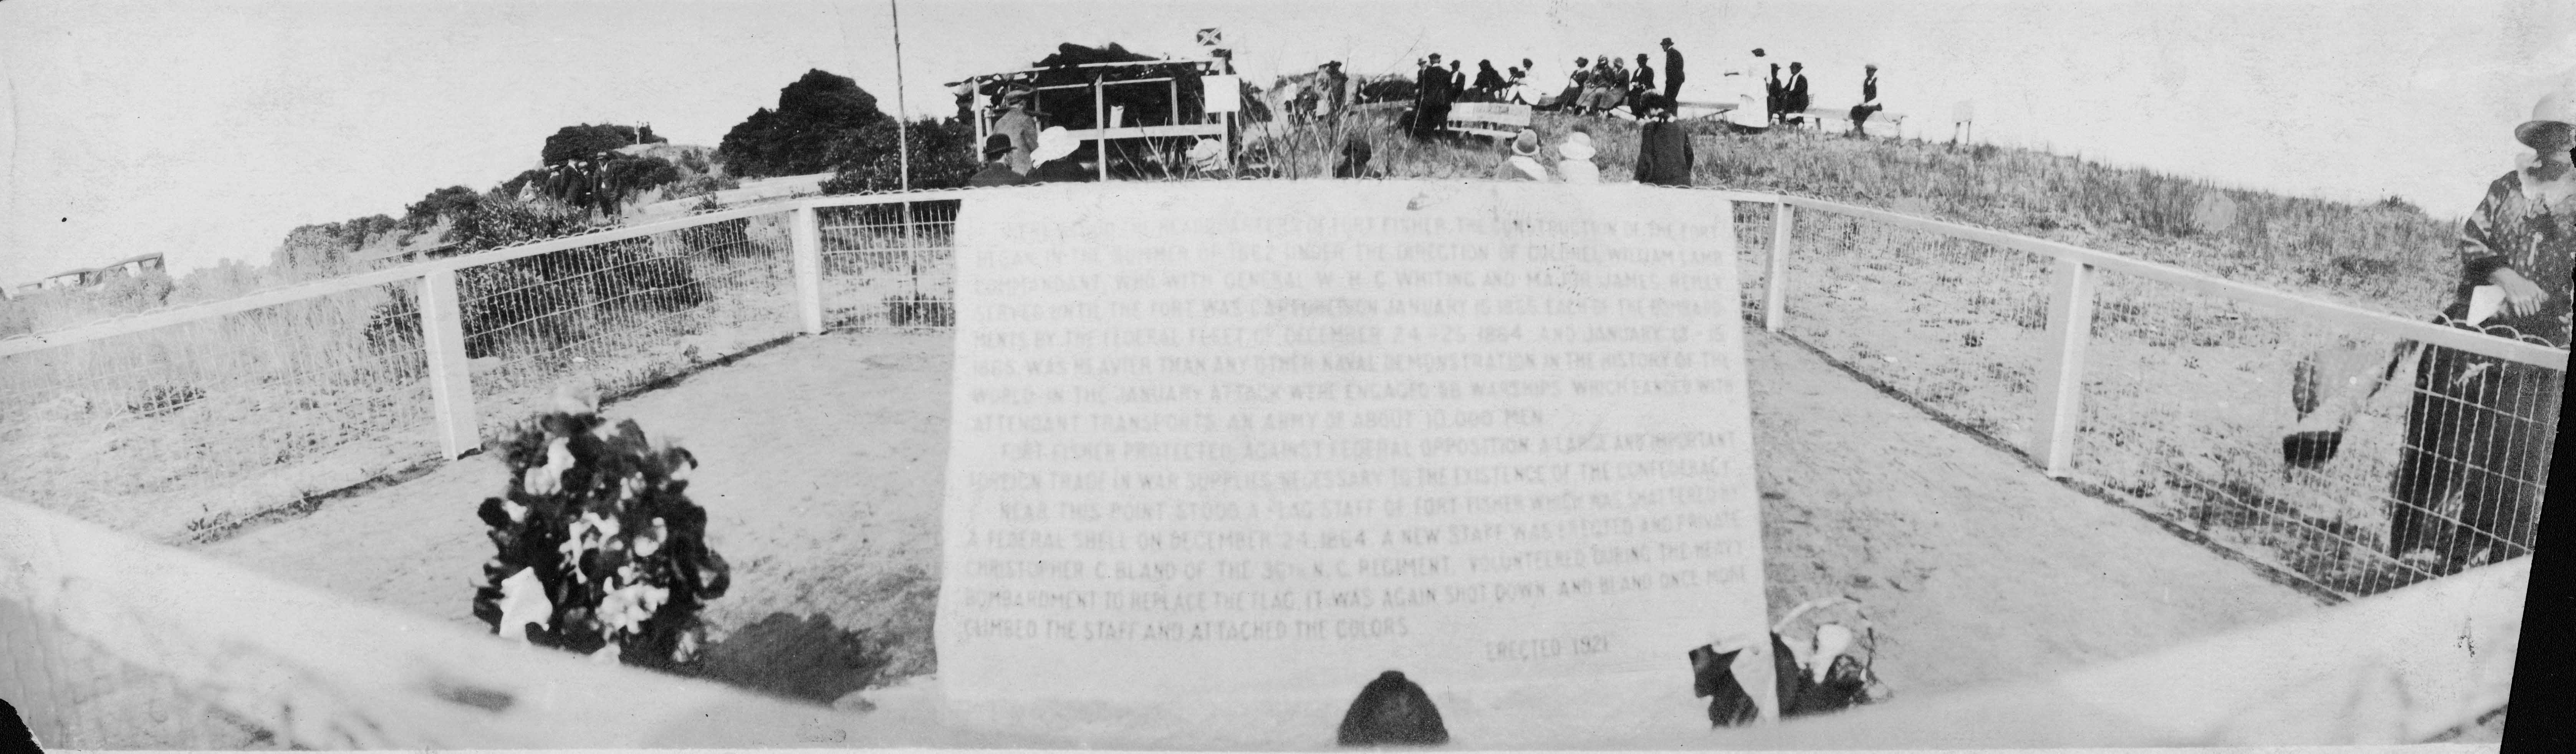 HEADQUARTERS OF FORT FISHER. THE CONSTRUCTION OF THE FORT
BEGAN IN THE SUMMER OF 1862 UNDER THE DIRECTION OF COLONEL WILLIAM LAMB
COMMANDANT, WHO WITH GENERAL W. H. C. WHITING AND MAJOR JAMES REILLY
SERVED UNTIL THE FORT WAS CAPTURED ON JANUARY 15 1865. EACH OF THE BOMBARD-
MENTS BY THE FEDERAL FLEET OF DECEMBER 24-25 1864 AND JANUARY 13-15
1865, WAS HEAVIER THAN ANY OTHER NAVAL DEMONSTRATION IN THE HISTORY OF THE
WORLD. IN THE JANUARY ATTACK WERE ENGAGED WARSHIPS WHICH LANDED WITH
ATTENDANT TRANSPORTS AN ARMY OF ABOUT 10,000 MEN
FORT FISHER PROTECTED, AGAINST FEDERAL OPPOSITION A LARGE AND IMPORTANT
FOREIGN TRADE IN WAR SUPPLIES NECESSARY TO THE EXISTENCE OF THE CONFEDERACY.
NEAR THIS POINT STOOD A FLAG STAFF OF FORT FISHER WHICH WAS SHATTERED BY
A FEDERAL SHELL ON DECEMBER 24, 1864. A NEW STAFF WAS ERECTED AND PRIVATE
CHRISTOPHER C. BLAND OF THE 36TH N. C. REGIMENT, VOLUNTEERED DURING THE HEAVY
BOMBARDMENT TO REPLACE THE FLAG. IT WAS AGAIN SHOT DOWN AND BLAND ONCE MORE
CLIMBED THE STAFF AND ATTACHED THE COLORS
ERECTED 1921